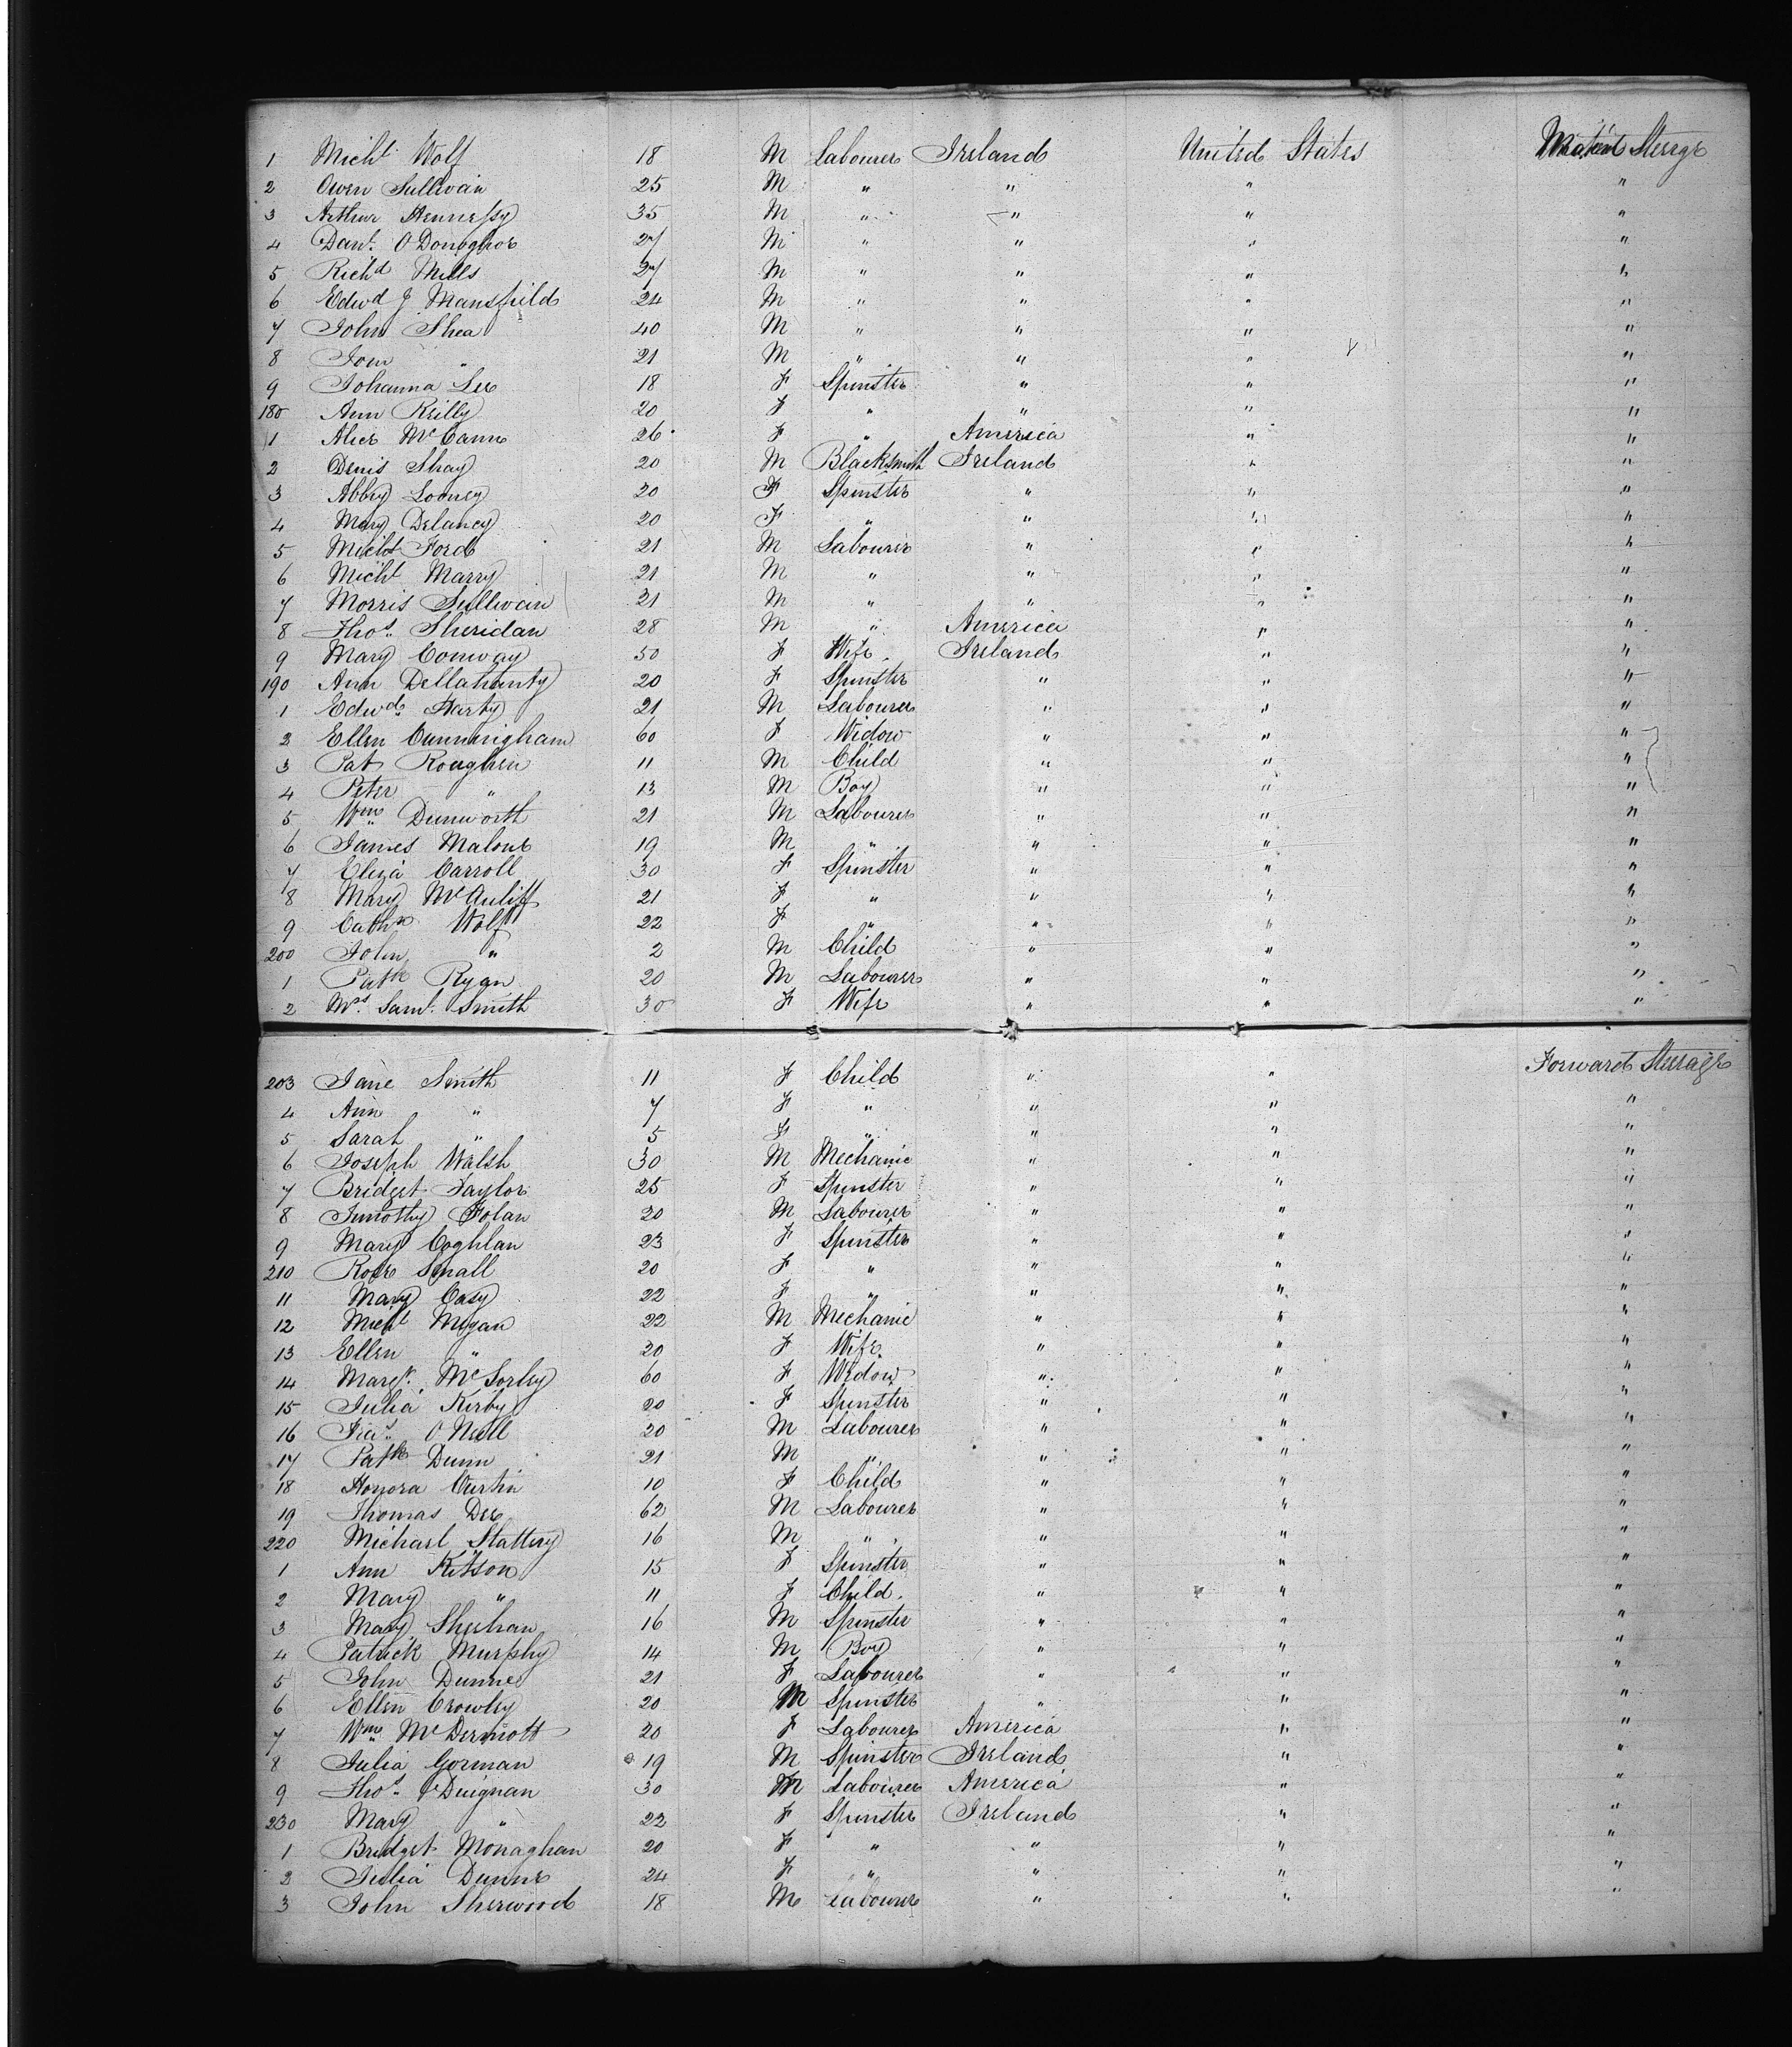 1 Michl Wolf 18 M Labourer Ireland United States Steerage
2 Owen Sullivan 25 M " " " "
3 Arthur Hennessy 35 M " " " "
4 Danl. O'Donoghoe 27 M " " " "
5 Richd Mills 27 M " " " "
6 Edwd J Mansfield 24 M " " " "
7 John Shea 40 M " " " "
8 " 21 M " " " "
9 Johanna Lee 18 F Spinster " " "
180 Ann Reilly 20 F " " " "
1 Alice McCann 26 F " America " "
2 Denis Shay 20 M Blacksmith Ireland " "
3 Abbey Looney 20 F Spinster " " "
4 Mary Delaney 20 F " " " "
5 Michl Ford 21 M Labourer " " "
6 Michl Marry 21 M " " " "
7 Morris Sullivan 21 M " " " "
8 Thos. Sheridan 28 M " America " "
9 Mary Conway 50 F Wife Ireland " "
190 Ann Dellahanty 20 F Spinster " " "
1 Edwd. Harty 21 M Labourer " " "
2 Ellen Cunningham 60 F Widow " " "
3 Pat Roughen 11 M Child " " "
4 Peter " 13 M Boy " " "
5 Wm. Dunworth 21 M Labourer " " "
6 James Malone 19 M " " " "
7 Eliza Carroll 30 F Spinster " " "
8 Mary McAuliff 21 F " " " "
9 Cathe Wolf 22 F " " " "
200 John " 2 M Child " " "
1 Patk Ryan 20 M Labourer " " "
2 Mrs. Saml. Smith 30 F Wife " " "
203 Jane Smith 11 F Child " " Forward Steerage
4 Ann " 7 F " " " "
5 Sarah " 5 F " " " "
6 Joseph Walsh 30 M Mechanic " " "
7 Bridget Taylor 25 F Spinster " " "
8 Timothy Folan 20 M Labourer " " "
9 Mary Coghlan 23 F Spinster " " "
210 Rose Small 20 F " " " "
11 Mary Casy 22 F " " " "
12 Michl Megan 22 M Mechanic " " "
13 Ellen " 20 F Wife " " "
14 Margt. McSorley 60 F Widow " " "
15 Julia Kirby 20 F Spinster " " "
16 Fras. O'Neill 20 M Labourer " " "
17 Patk Dunn 21 M " " " "
18 Honora Curtin 10 F Child " " "
19 Thomas Dee 62 M Labourer " " "
220 Michael Slattery 16 M " " " "
1 Ann Kitson 15 F Spinster " " "
2 Mary " 11 F Child. " " "
3 Mary Sheehan 16 M Spinster " " "
4 Patrick Murphy 14 M Boy " " "
5 John Dunne 21 F Labourer " " "
6 Ellen Crowley 20 M Spinster " " "
7 Wm. McDermott 20 F Labourer America " "
8 Julia Gorman 19 M Spinster Ireland " "
9 Thos. Duignan 30 M Labourer America " "
230 Mary " 22 F Spinster Ireland " "
1 Bridget Monaghan 20 F " " " "
2 Julia Dunne 24 F " " " "
3 John Sherwood 18 M Labourer " " "